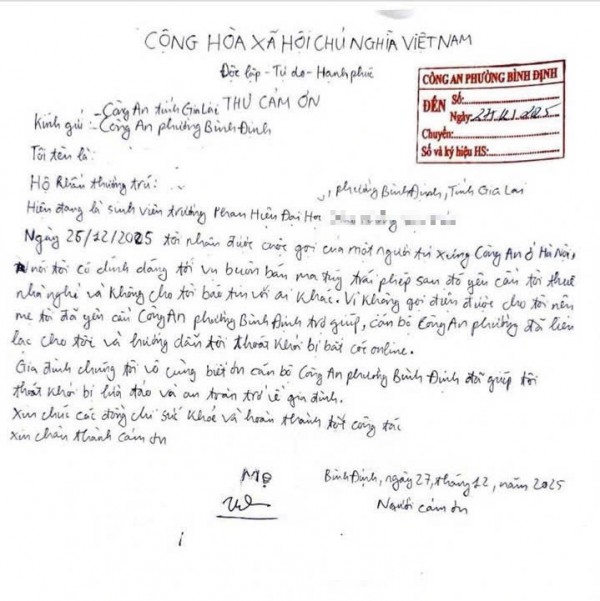 CỘNG HÒA XÃ HỘI CHỦ NGHĨA VIỆT NAM
Độc lập - Tự do - Hạnh phúc
THƯ CẢM ƠN
CÔNG AN PHƯỜNG BÌNH ĐỊNH
ĐẾN Số:
Ngày: 27/12/2025
Chuyển:
Số và ký hiệu HS:
Kính gửi: - Công An tỉnh Gia Lai
- Công An phường Bình Định
Tôi tên là:
Hộ khẩu thường trú: , phường Bình Định, Tỉnh Gia Lai
Hiện đang là sinh viên trường Phan Hiệu Đại Học
Ngày 25/12/2025 tôi nhận được cuộc gọi của một người tự xưng Công An ở Hà Nội,
nói tôi có dính dáng tới vụ buôn bán ma túy trái phép sau đó yêu cầu tôi thuê
nhà nghỉ và không cho tôi báo tin với ai khác. Vì không gọi điện được cho tôi nên
mẹ tôi đã yêu cầu Công An phường Bình Định trợ giúp, cán bộ Công An phường đã liên
lạc cho tôi và hướng dẫn tôi thoát khỏi bị bắt cóc online.
Gia đình chúng tôi vô cùng biết ơn cán bộ Công An phường Bình Định đã giúp tôi
thoát khỏi bị lừa đảo và an toàn trở về gia đình.
Xin chúc các đồng chí sức khỏe và hoàn thành tốt công tác
xin chân thành cảm ơn
Bình Định, ngày 27, tháng 12, năm 2025
Mẹ
Người cảm ơn